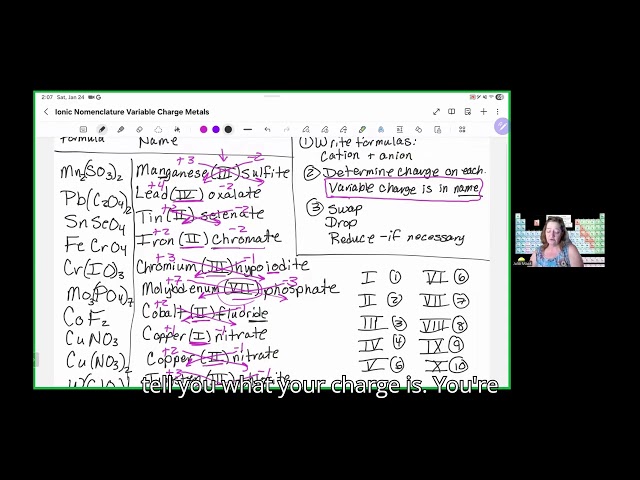 2:07 Sat, Jan 24
Ionic Nomenclature Variable Charge Metals
Formula Name
Mn2(SO3)2 Manganese (III) sulfite +3 −2
Pb(C2O4)2 Lead (IV) oxalate +4 −2
SnSeO4 Tin (II) selenate +2 −2
FeCrO4 Iron (II) chromate +2 −2
Cr(IO)3 Chromium (III) hypoiodite +3 −1
Mo3(PO4)7 Molybdenum (VII) phosphate +7 −3
CoF2 Cobalt (II) fluoride +2 −1
CuNO3 Copper (I) nitrate +1 −1
Cu(NO3)2 Copper (II) nitrate +2 −1
① Write formulas:
cation + anion
② Determine charge on each.
Variable charge is in name.
③ Swap
Drop
Reduce - if necessary
I ① VI ⑥
II ② VII ⑦
III ③ VIII ⑧
IV ④ IX ⑨
V ⑤ X ⑩
tell you what your charge is. You're